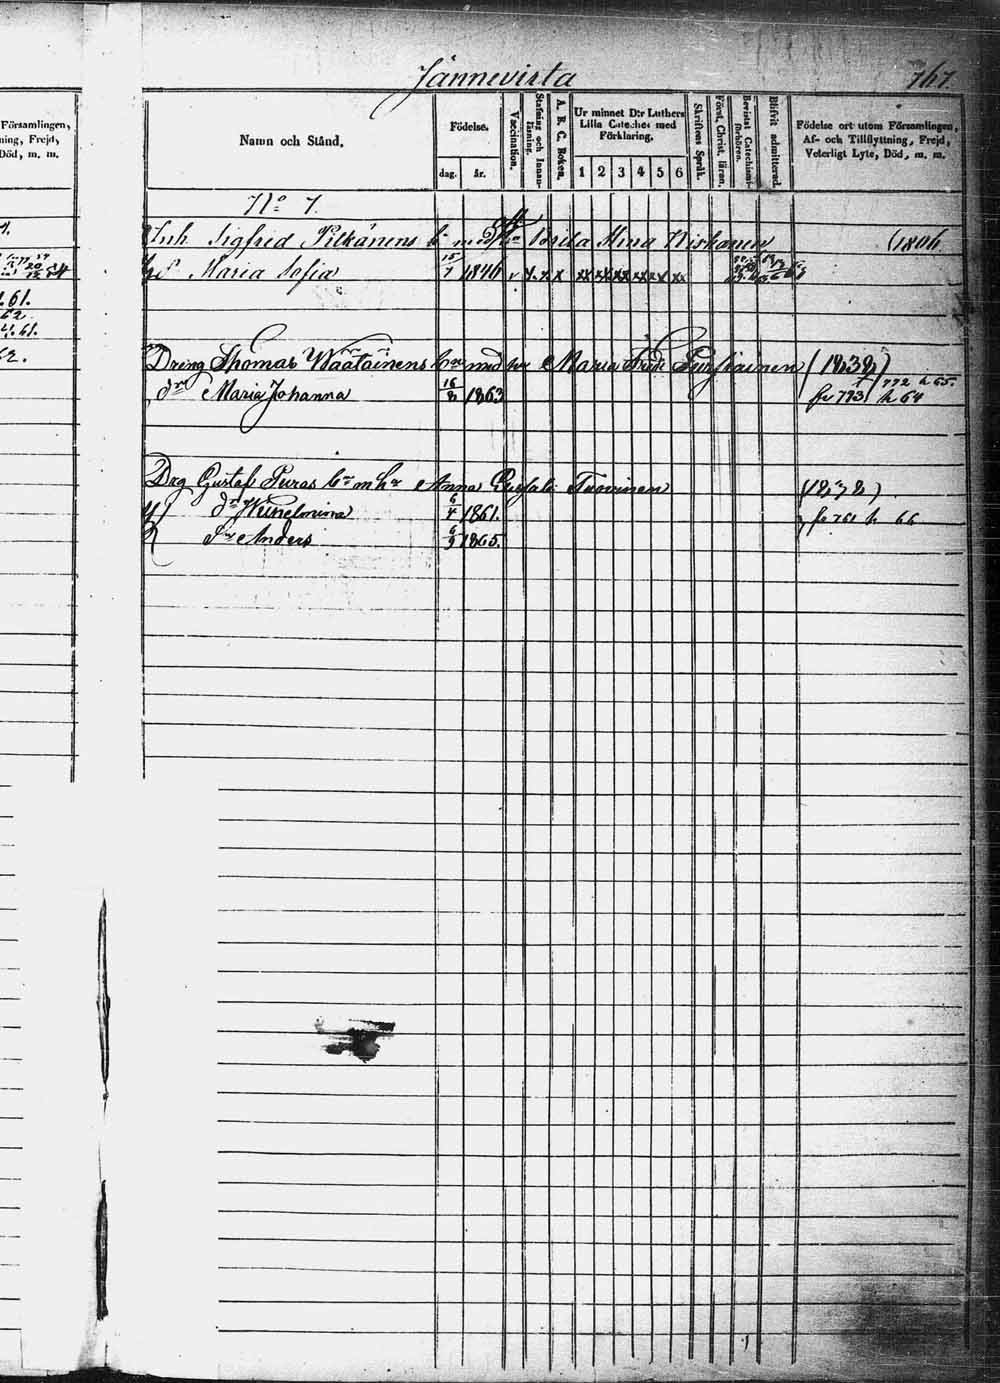 Jännevirta 767.
Församlingen,
ning, Frejd,
Död, m. m.
Namn och Stånd.
Födelse.
dag. år.
Vaccination.
Stafning och Innan-läsning.
A. B. C. Boken.
Ur minnet D:r Luthers
Lilla Cateches med
Förklaring.
1 2 3 4 5 6
Skriftens Språk.
Först. Christ. läran.
Bevistat Catechismi-förhören.
Blifvit admitterad.
Födelse ort utom Församlingen,
Af- och Tillflyttning, Frejd,
Veterligt Lyte, Död, m. m.
No 7.
Inh Sigfrid Pitkänens b. med Brita Stina Niskanen (1806
Maria Sofia 15/7 1846 v x x x xx xx xx xx xx xx
61.
62.
61.
62.
Dreng Thomas Wäätäinens bn med hu Maria (1838)
dr Maria Johanna 16/8 1863 fr 773 h 64
772 h 65.
Drg Gustaf Puras bn m hu Anna Tuovinen
dr Wilhelmina 6/4 1861. fr 761 h 66
Sn Anders 6/9 1865.